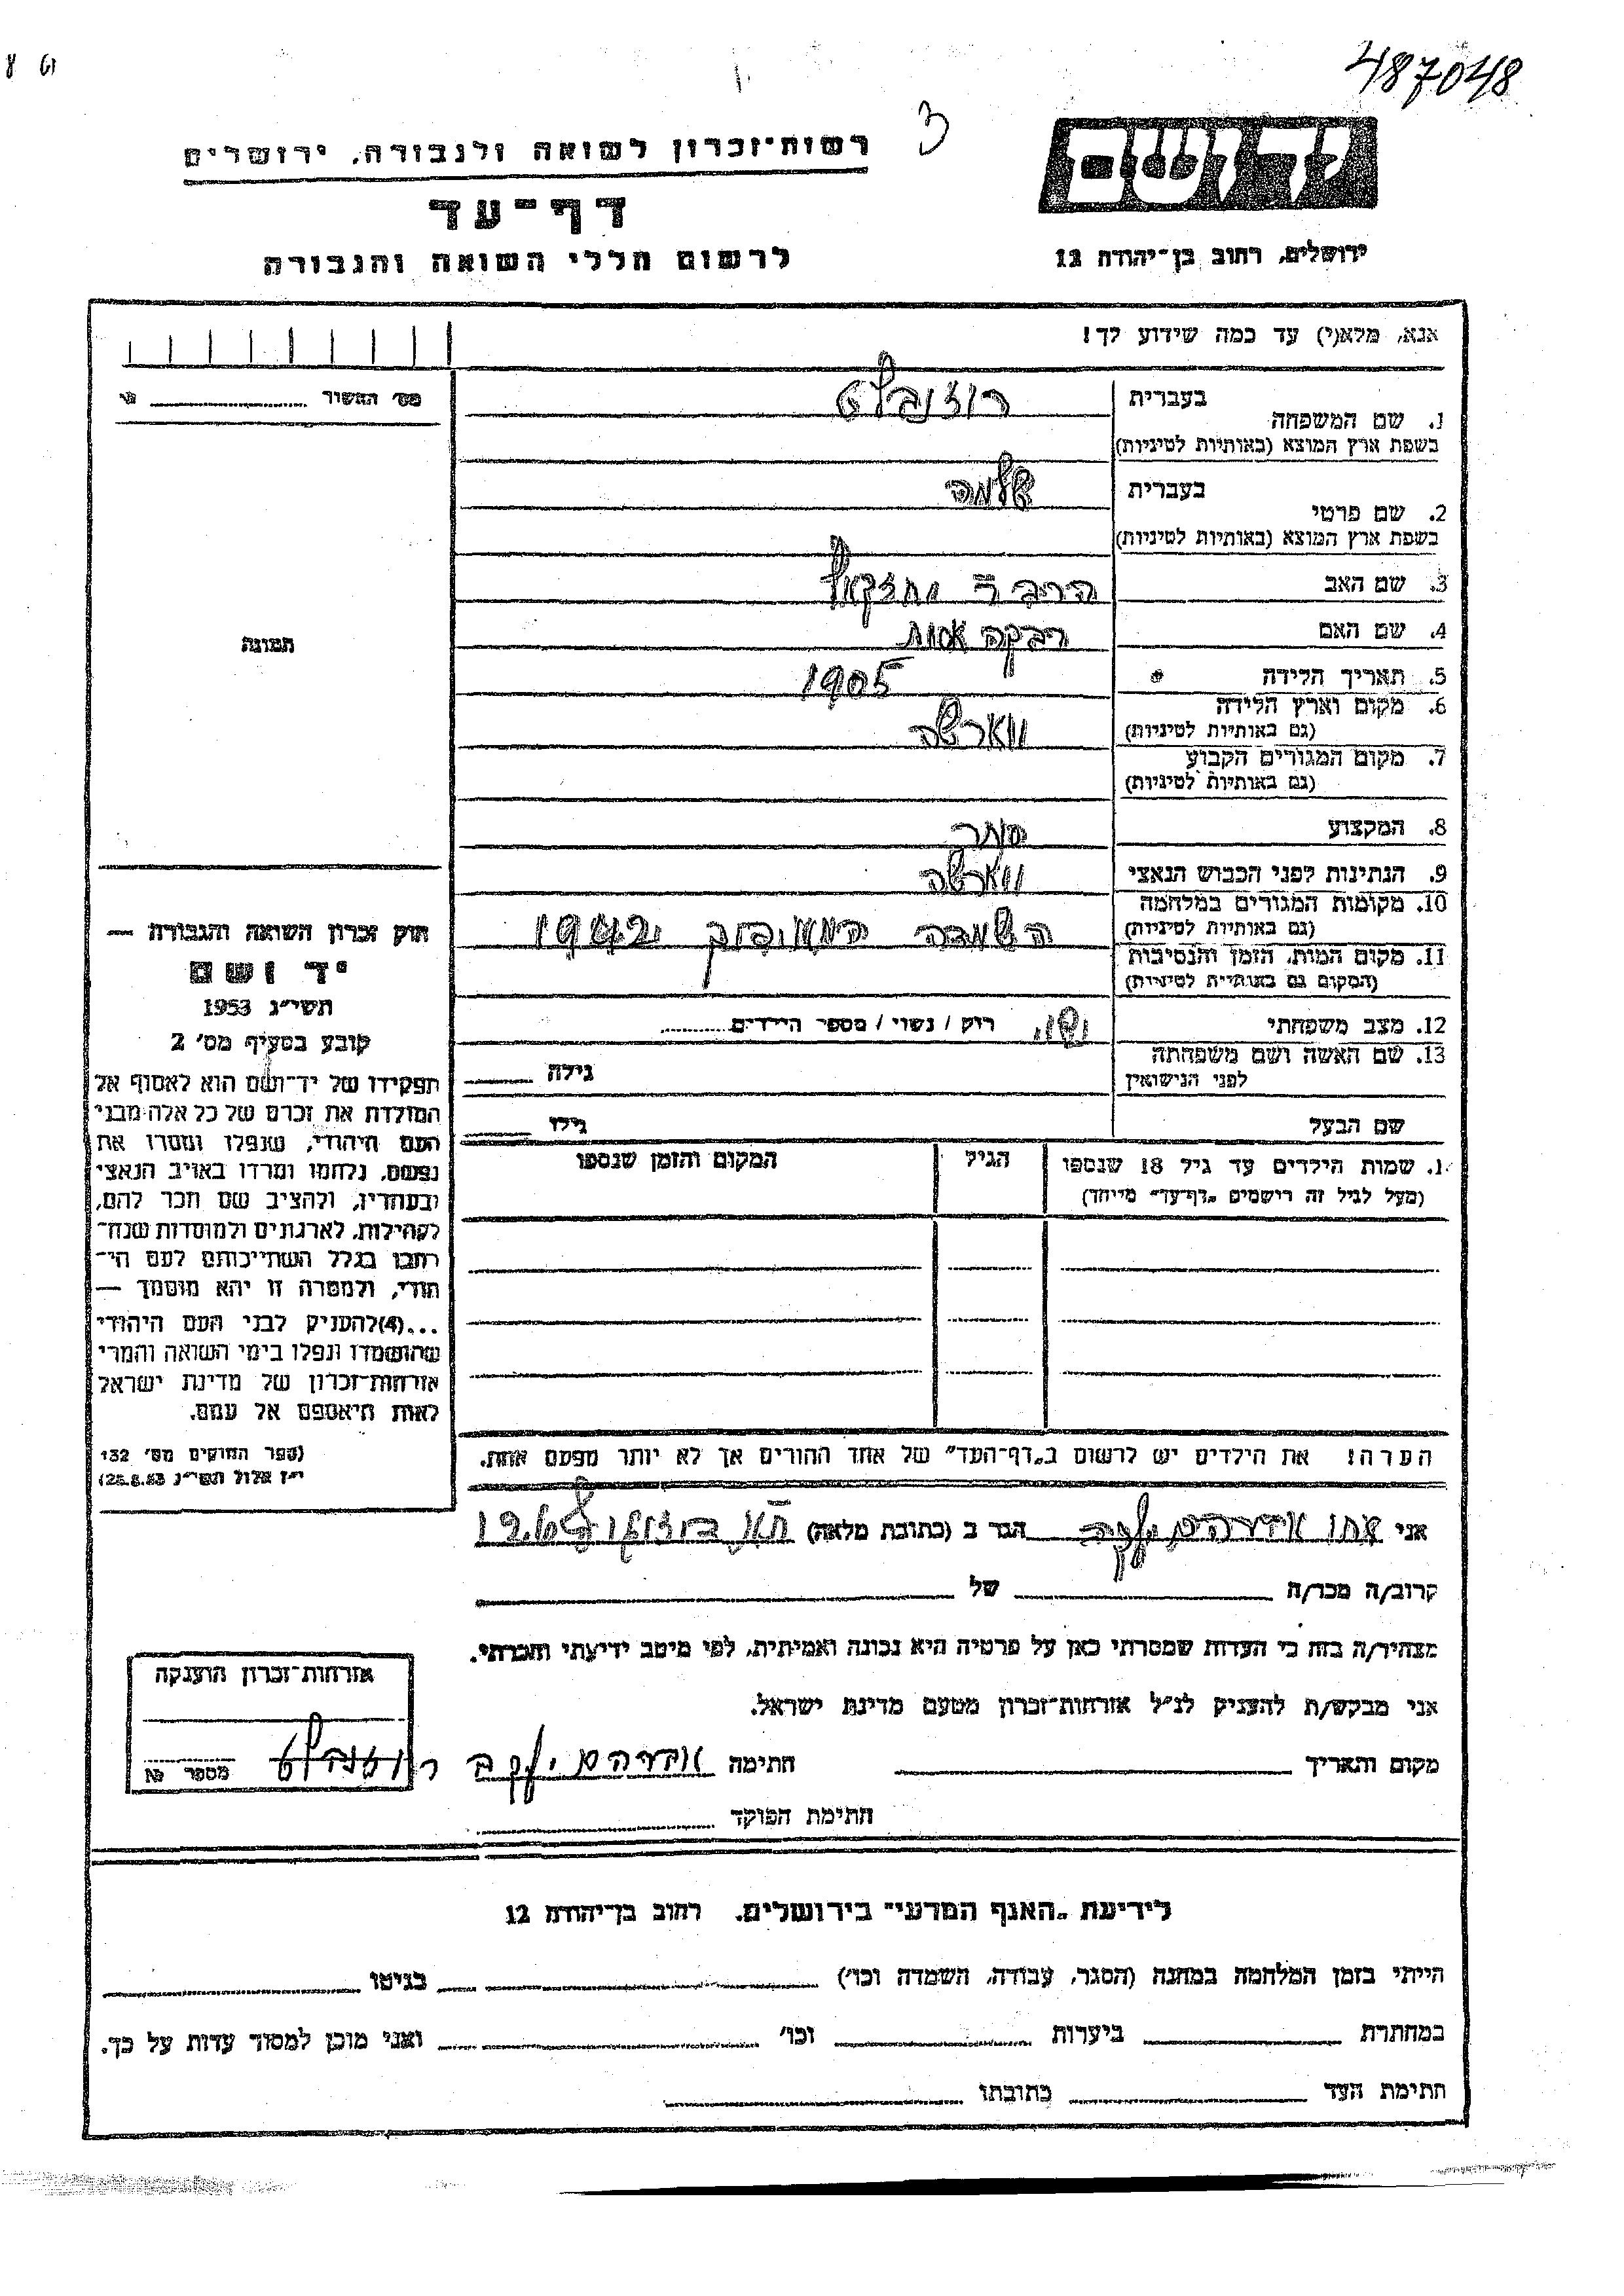 487048
3
יד ושם
ירושלים, רחוב בן־יהודה 12
רשות־זכרון לשואה ולגבורה, ירושלים
דף־עד
לרשום חללי השואה והגבורה
אנא, מלא(י) עד כמה שידוע לך!
1. שם המשפחה
בעברית רוזנבלט
בשפת ארץ המוצא (באותיות לטיניות)
2. שם פרטי
בעברית שלמה
בשפת ארץ המוצא (באותיות לטיניות)
3. שם האב הרב ר' יחזקאל
4. שם האם רבקה
5. תאריך הלידה 1905
6. מקום וארץ הלידה ווארשה
(גם באותיות לטיניות)
7. מקום המגורים הקבוע
(גם באותיות לטיניות)
8. המקצוע סוחר
9. הנתינות לפני הכבוש הנאצי ווארשה
10. מקומות המגורים במלחמה
(גם באותיות לטיניות) השמדה 1942
11. מקום המות, הזמן והנסיבות
(המקום גם באותיות לטיניות)
12. מצב משפחתי נשוי רווק / נשוי / מספר הילדים
13. שם האשה ושם משפחתה
לפני הנישואין גילה
שם הבעל גילו
1. שמות הילדים עד גיל 18 שנספו הגיל המקום והזמן שנספו
(מעל לגיל זה רושמים "דף־עד" מיוחד)
הערה! את הילדים יש לרשום ב"דף־העד" של אחד ההורים אך לא יותר מפעם אחת.
מס' התשיר
תמונה
חוק זכרון השואה והגבורה —
יד ושם
תשי"ג 1953
קובע בסעיף מס' 2
תפקידו של יד־ושם הוא לאסוף אל
המולדת את זכרם של כל אלה מבני
העם היהודי, שנפלו ומסרו את
נפשם, נלחמו ומרדו באויב הנאצי
ובעוזריו, ולהציב שם וזכר להם,
לקהילות, לארגונים ולמוסדות שנח־
רבו בגלל השתייכותם לעם הי־
הודי, ולמטרה זו יהא מוסמך —
...(4)להעניק לבני העם היהודי
שהושמדו ונפלו בימי השואה והמרי
אזרחות־זכרון של מדינת ישראל
לאות היאספם אל עמם.
(ספר החוקים מס' 132
י"ז אלול תשי"ג 25.8.53)
אני אחיו אברהם יעקב הגר ב (כתובת מלאה) ת"א
קרוב/ה מכר/ה של
מצהיר/ה בזה כי העדות שמסרתי כאן על פרטיה היא נכונה ואמיתית, לפי מיטב ידיעתי והכרתי.
אני מבקש/ת להעניק לנ"ל אזרחות־זכרון מטעם מדינת ישראל.
מקום ותאריך חתימה אברהם יעקב רוזנבלט
חתימת הפוקד
אזרחות־זכרון הוענקה
מספר №
לידיעת "האגף המדעי" בירושלים. רחוב בן־יהודה 12
הייתי בזמן המלחמה במחנה (הסגר, עבודה, השמדה וכו') בגיטו
במחתרת ביערות וכו' ואני מוכן למסור עדות על כך.
חתימת העד כתובתו